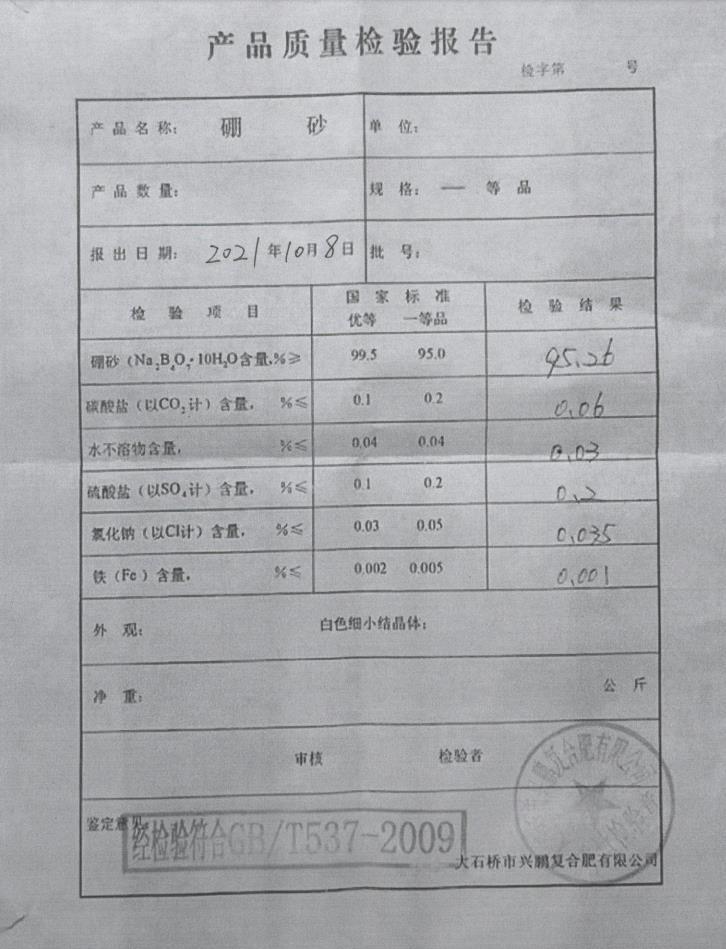 产品质量检验报告
检字第 号
产品名称： 硼 砂 单 位：
产品数量： 规 格： 一 等 品
报出日期： 2021年10月8日 批 号：
检 验 项 目 国 家 标 准 检 验 结 果
优等 一等品
硼砂（Na₂B₄O₇·10H₂O含量,%≥ 99.5 95.0 95.26
碳酸盐（以CO₂计）含量， %≤ 0.1 0.2 0.06
水不溶物含量， %≤ 0.04 0.04 0.03
硫酸盐（以SO₄计）含量， %≤ 0.1 0.2 0.2
氯化钠（以Cl计）含量， %≤ 0.03 0.05 0.035
铁（Fe）含量， %≤ 0.002 0.005 0.001
外 观： 白色细小结晶体；
净 重： 公 斤
审核 检验者
鉴定意见
经检验符合GB/T537-2009
大石桥市兴鹏复合肥有限公司
复合肥有限公司
检验章